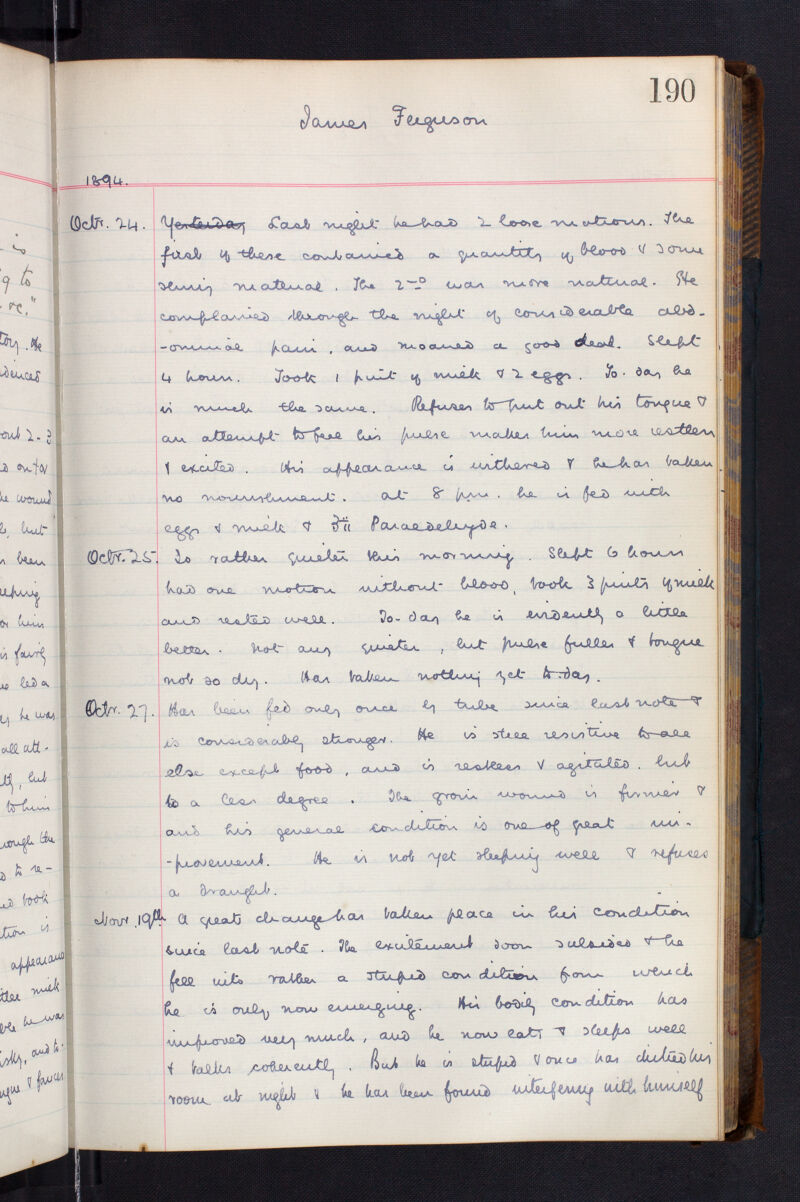 190
James Ferguson
1894.
Octr. 24. Yesterday Last night he had 2 loose motions. The
first of these contained a quantity of blood & some
slimy material. The 2nd was more natural. He
complained through the night of considerable abd-
-ominal pain, and moaned a good deal. Slept
4 hours. Took 1 pint of milk & 2 eggs. To-day he
is much the same. Refuses to put out his tongue &
an attempt to feel his pulse makes him more restless
& excited. His appearance is withered & he has taken
no nourishment. At 8 p.m. he is fed with
eggs & milk & ʒii Paraldehyde.
Octr. 25. Is rather quieter this morning. Slept 6 hours
had one motion without blood, took 3 pints of milk
and rested well. To-day he is evidently a little
better. Not any quieter, but pulse fuller & tongue
not so dry. Has taken nothing yet to-day.
Octr. 27. Has been fed only once by tube since last note &
is considerably stronger. He is still resistive to all
else except food, and is restless & agitated. but
to a less degree. The groin wound is firmer &
and his general condition is one of great im-
-provement. He is not yet sleeping well & refuses
a draught.
Novr. 19th A great change has taken place in his condition
since last note. The excitement soon subsided & he
fell into rather a stupid condition from which
he is only now emerging. His bodily condition has
improved very much, and he now eats & sleeps well
& talks coherently. But he is stupid & once has dirtied his
room at night & he has been found interfering with himself